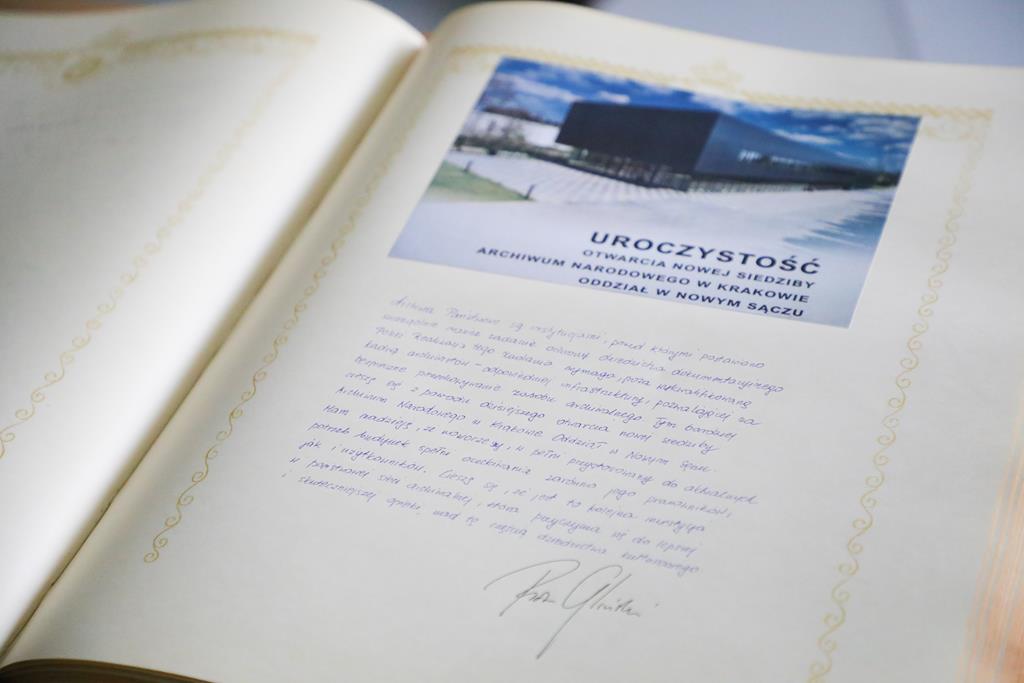 UROCZYSTOŚĆ
OTWARCIA NOWEJ SIEDZIBY
ARCHIWUM NARODOWEGO W KRAKOWIE
ODDZIAŁ W NOWYM SĄCZU
Archiwa Państwowe są instytucjami, przed którymi postawiono
szczególnie ważne zadanie ochrony dziedzictwa dokumentacyjnego
Polski. Realizacja tego zadania wymaga, poza wykwalifikowaną
kadrą archiwistów - odpowiedniej infrastruktury, pozwalającej na
bezpieczne przechowywanie zasobu archiwalnego. Tym bardziej
cieszę się z powodu dzisiejszego otwarcia nowej siedziby
Archiwum Narodowego w Krakowie Oddział w Nowym Sączu.
Mam nadzieję, że nowoczesny, w pełni przystosowany do aktualnych
potrzeb budynek spełni oczekiwania zarówno jego pracowników,
jak i użytkowników. Cieszę się, że jest to kolejna inwestycja
w państwowej sieci archiwalnej, która przyczynia się do lepszej
i skuteczniejszej opieki nad tą częścią dziedzictwa kulturowego